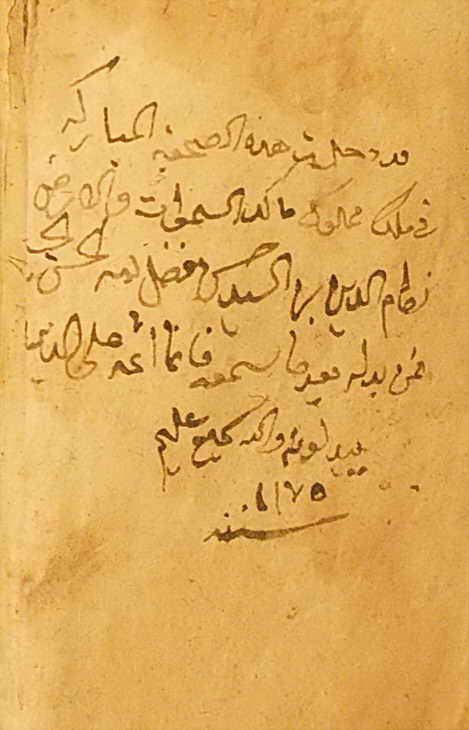 قد دخلت هذه الصحيفة المباركة
في ملك مملوك مالك السموات والارض
نظام الدين بن السيد حسن بفضل الله الحسني
فمن بدله بعد ما سمعه فانما اثمه على الذين
يبدلونه والله سميع عليم
سنة